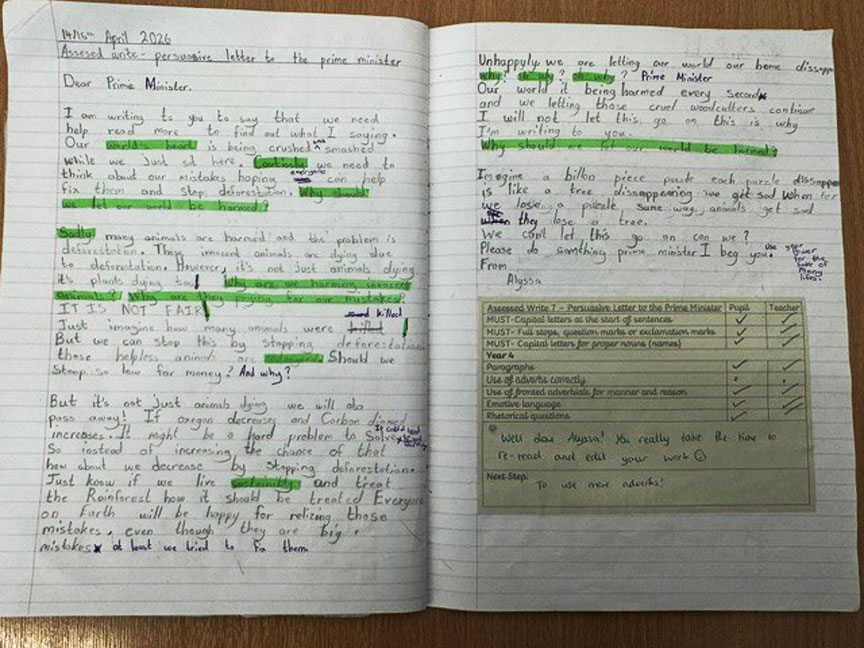 14/15th April 2026
Assesed write - persuasive letter to the prime minister
Dear Prime Minister.
I am writing to you to say that we need
help read more to find out what I saying.
Our world's heart is being crushed and smashed
while we just sit here. Coutinsly we need to
think about our mistakes hoping everyone can help
fix them and stop deforestation. Why should
we let our world be harmed?
Sadly many animals are harmed and the problem is
deforestation. These innocent animals are dying due
to deforestation. However, it's not just animals dying
it's plants dying too! Why are we harming innocent
animals? Why are they paying for our mistakes?
IT IS NOT FAIR!
Just imagine how many animals were killed!
But we can stop this by stopping deforestation
those helpless animals are Should we
stoop so low for money? And why?
But it's not just animals dying we will also
pass away! If oxegen decreases and Carbon dioxied
increases. It might be a hard problem to Solve
So instead of increasing the chance of that
how about we decrease by stopping deforestation.
Just know if we live sustainbly and treat
the Rainforest how it should be treated Everyone
on Earth will be happy for relizing those
mistakes, even though they are big
mistakes at least we tried to fix them
Unhappyly we are letting our world our home dissapp
why? oh why? oh why? Prime Minister
Our world it being harmed every second
and we letting those cruel woodcutters continue
I will not let this go on this is why
I'm writing to you.
Why should we let our world be harmed?
Imagine a billon piece puzzle each puzzle dissappear
is like a tree dissappearing we get sad When
we lose a puzzle same way animals get sad
when they lose a tree.
We can't let this go on can we?
Please do somthing prime minister I beg you. Use your power for the sake of many lifes.
From
Alyssa
Assessed Write 7 – Persuasive Letter to the Prime Minister Pupil Teacher
MUST- Capital letters at the start of sentences
MUST- Full stops, question marks or exclamation marks
MUST- Capital letters for proper nouns (names)
Year 4
Paragraphs
Use of adverbs correctly
Use of fronted adverbials for manner and reason
Emotive language
Rhetorical questions
Well done Alyssa! You really take the time to
re-read and edit your work
Next Step:
To use more adverbs!